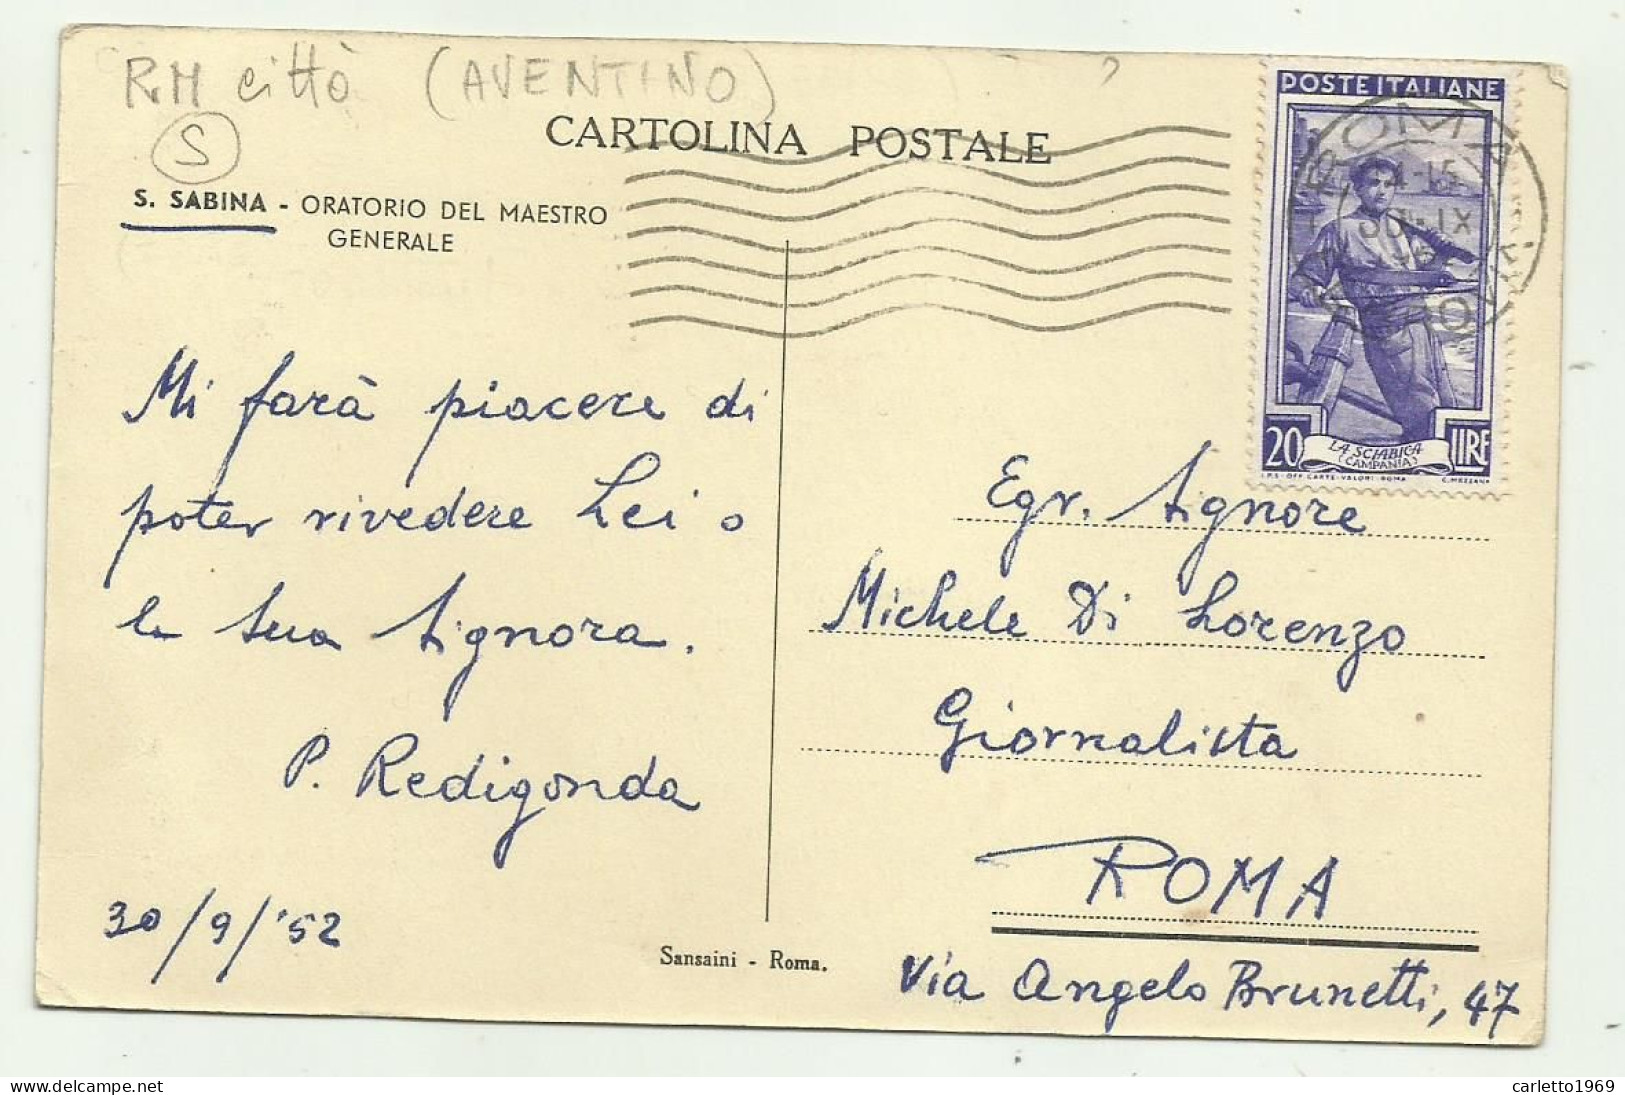 RM città (AVENTINO)
S
CARTOLINA POSTALE
S. SABINA - ORATORIO DEL MAESTRO
GENERALE
POSTE ITALIANE
20 LIRE
LA SCIABICA
(CAMPANIA)
I.P.S.-OFF. CARTE-VALORI-ROMA C. MEZZANA
ROMA
30.IX
FERROVIA
Mi farà piacere di
poter rivedere Lei o
la sua Signora.
P. Redigonda
30/9/'52
Egr. Signore
Michele Di Lorenzo
Giornalista
ROMA
Via Angelo Brunetti, 47
Sansaini - Roma.
delcampe.net
carletto1969